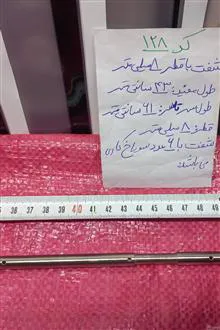 کد ۱۲۸
شفت با قطر ۸ میلی متر
طول مفید: ۴۳ سانتی متر
طول سر تا سر: ۶۱ سانتی متر
قطر ۸ میلی متر
شفت با ۶ عدد سوراخ
می باشد
35 36 37 38 39 40 41 42 43 44 45 46 47 48 49